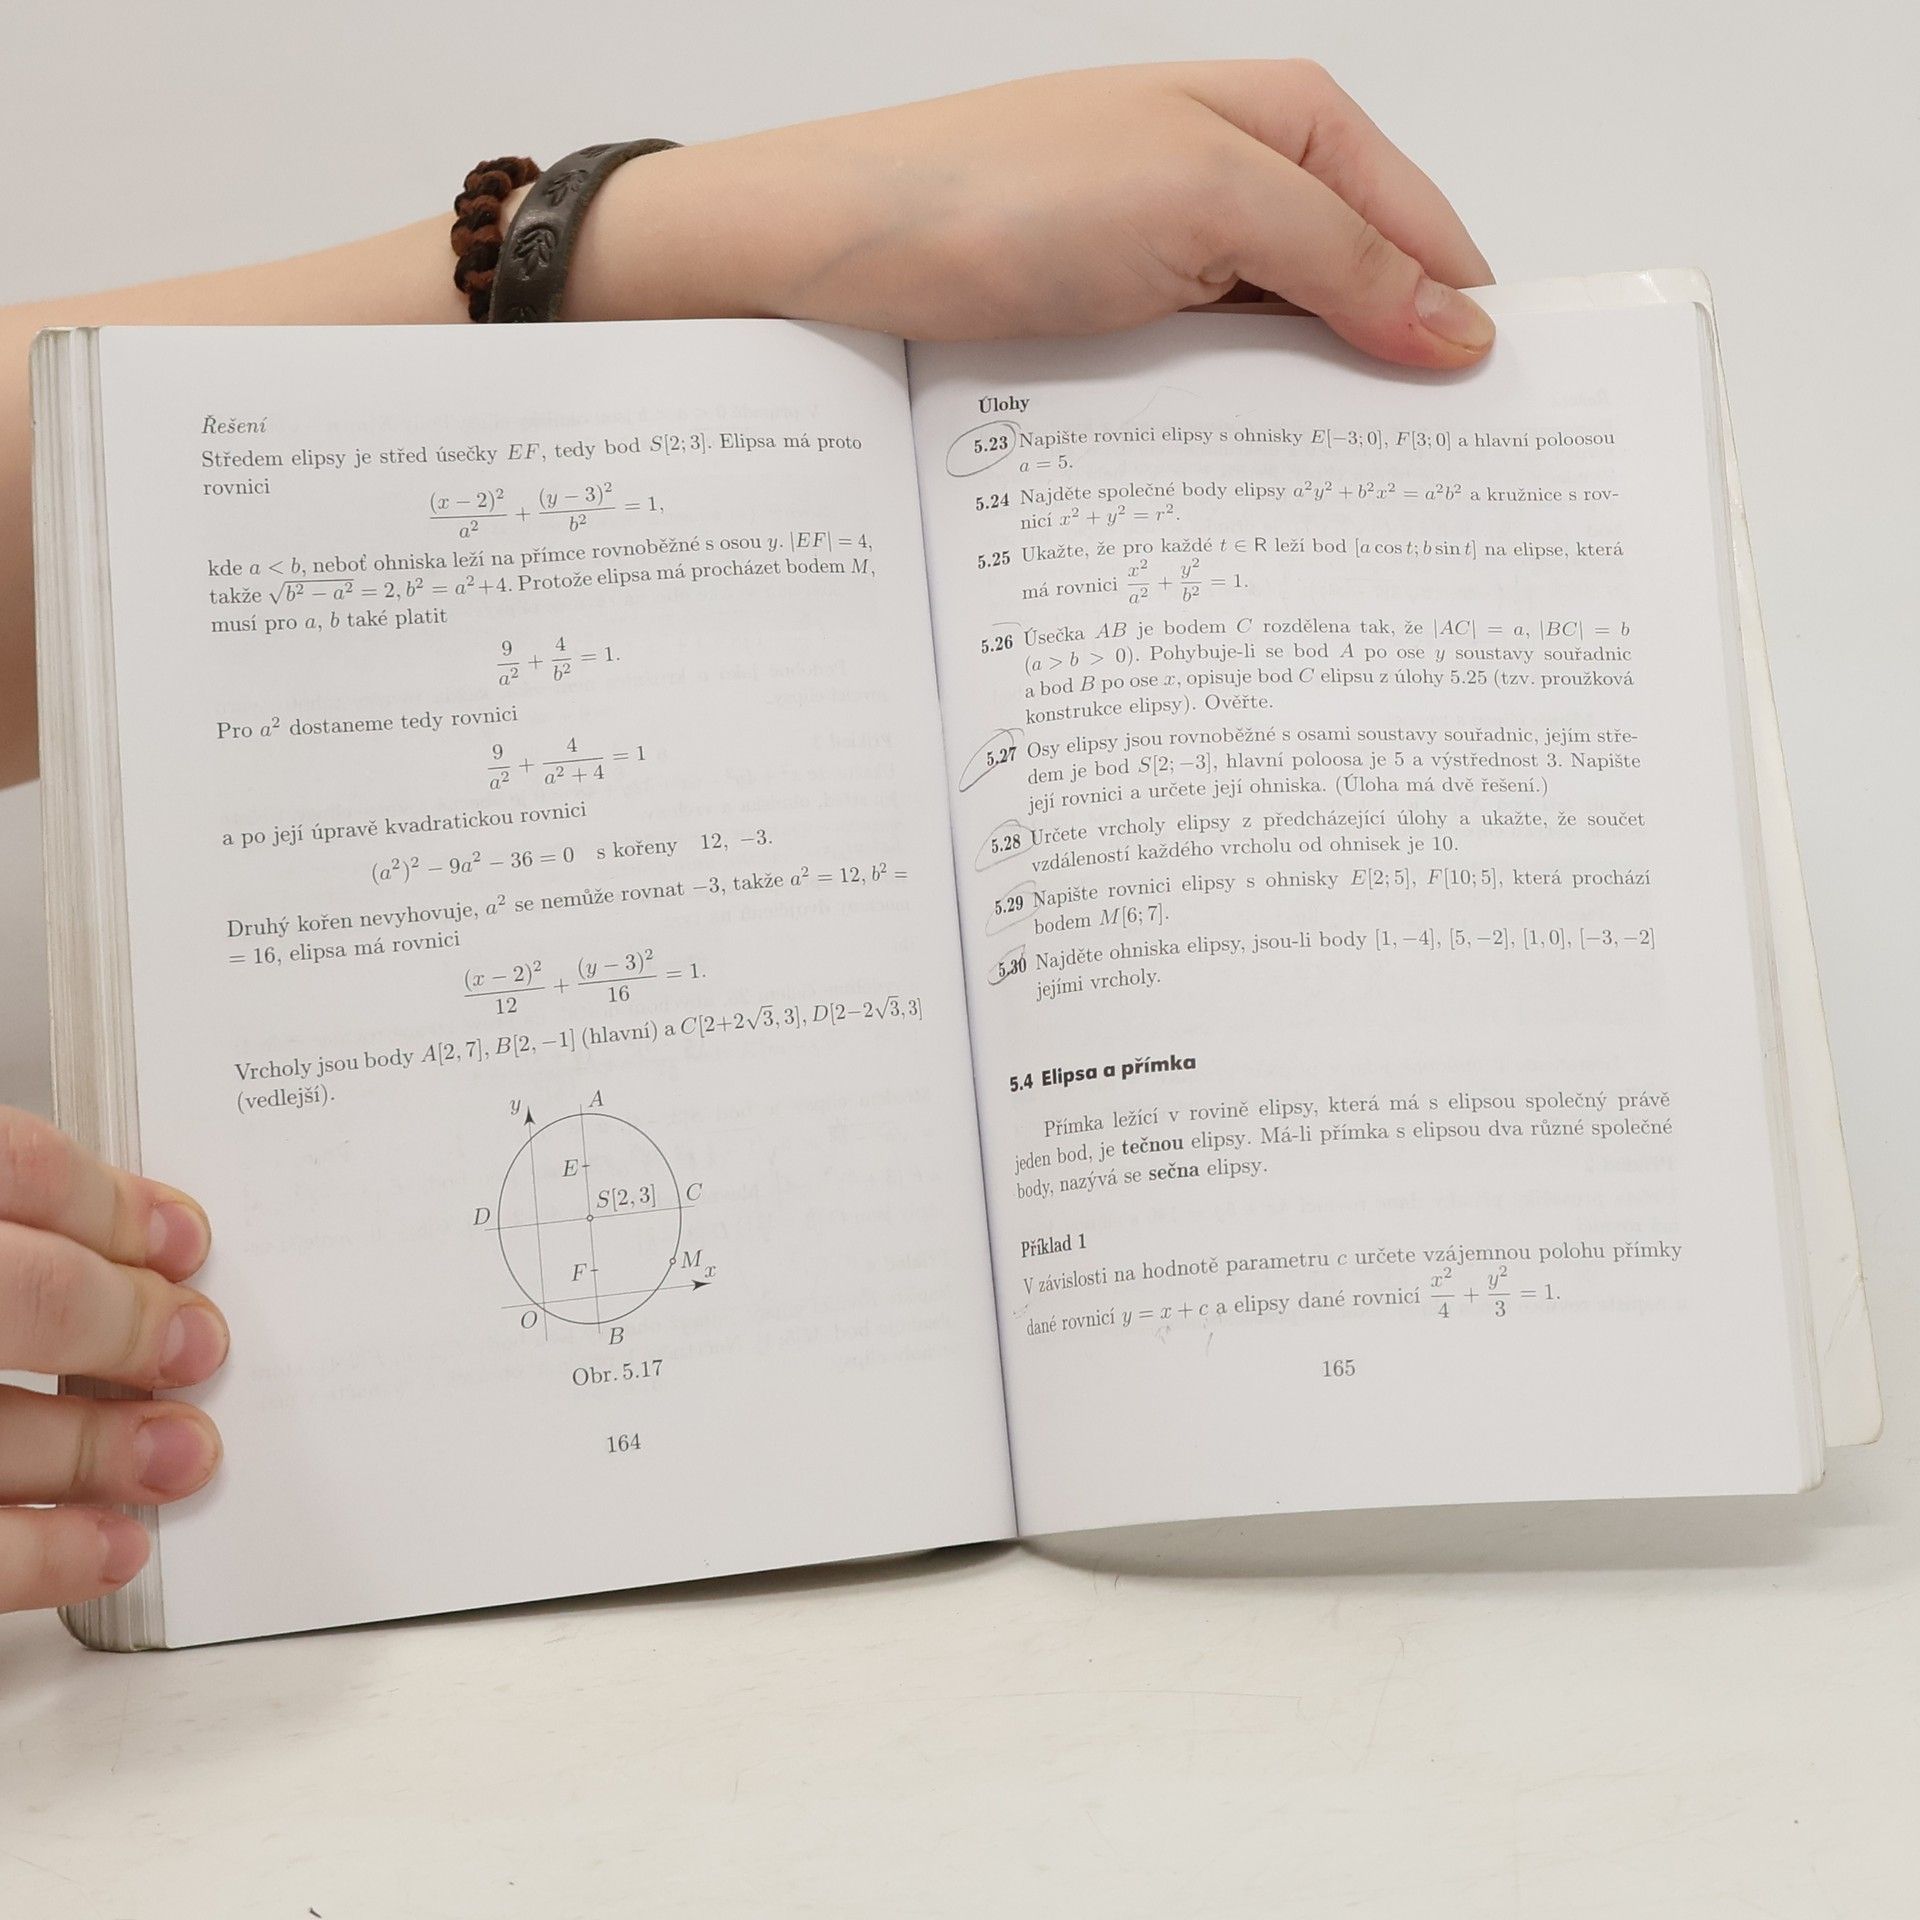 Řešení
Středem elipsy je střed úsečky EF, tedy bod S[2; 3]. Elipsa má proto
rovnici
(x − 2)²/a² + (y − 3)²/b² = 1,
kde a < b, neboť ohniska leží na přímce rovnoběžné s osou y. |EF| = 4,
takže √(b² − a²) = 2, b² = a²+4. Protože elipsa má procházet bodem M,
musí pro a, b také platit
9/a² + 4/b² = 1.
Pro a² dostaneme tedy rovnici
9/a² + 4/(a² + 4) = 1
a po její úpravě kvadratickou rovnici
(a²)² − 9a² − 36 = 0 s kořeny 12, −3.
Druhý kořen nevyhovuje, a² se nemůže rovnat −3, takže a² = 12, b² =
= 16, elipsa má rovnici
(x − 2)²/12 + (y − 3)²/16 = 1.
Vrcholy jsou body A[2, 7], B[2, −1] (hlavní) a C[2+2√3, 3], D[2−2√3, 3]
(vedlejší).
y A
E
S[2, 3] C
D
F M
x
O
B
Obr. 5.17
164
Úlohy
5.23 Napište rovnici elipsy s ohnisky E[−3; 0], F[3; 0] a hlavní poloosou
a = 5.
5.24 Najděte společné body elipsy a²y² + b²x² = a²b² a kružnice s rov-
nicí x² + y² = r².
5.25 Ukažte, že pro každé t ∈ R leží bod [a cos t; b sin t] na elipse, která
má rovnici x²/a² + y²/b² = 1.
5.26 Úsečka AB je bodem C rozdělena tak, že |AC| = a, |BC| = b
(a > b > 0). Pohybuje-li se bod A po ose y soustavy souřadnic
a bod B po ose x, opisuje bod C elipsu z úlohy 5.25 (tzv. proužková
konstrukce elipsy). Ověřte.
5.27 Osy elipsy jsou rovnoběžné s osami soustavy souřadnic, jejím stře-
dem je bod S[2; −3], hlavní poloosa je 5 a výstřednost 3. Napište
její rovnici a určete její ohniska. (Úloha má dvě řešení.)
5.28 Určete vrcholy elipsy z předcházející úlohy a ukažte, že součet
vzdáleností každého vrcholu od ohnisek je 10.
5.29 Napište rovnici elipsy s ohnisky E[2; 5], F[10; 5], která prochází
bodem M[6; 7].
5.30 Najděte ohniska elipsy, jsou-li body [1, −4], [5, −2], [1, 0], [−3, −2]
jejími vrcholy.
5.4 Elipsa a přímka
Přímka ležící v rovině elipsy, která má s elipsou společný právě
jeden bod, je tečnou elipsy. Má-li přímka s elipsou dva různé společné
body, nazývá se sečna elipsy.
Příklad 1
V závislosti na hodnotě parametru c určete vzájemnou polohu přímky
dané rovnicí y = x + c a elipsy dané rovnicí x²/4 + y²/3 = 1.
165